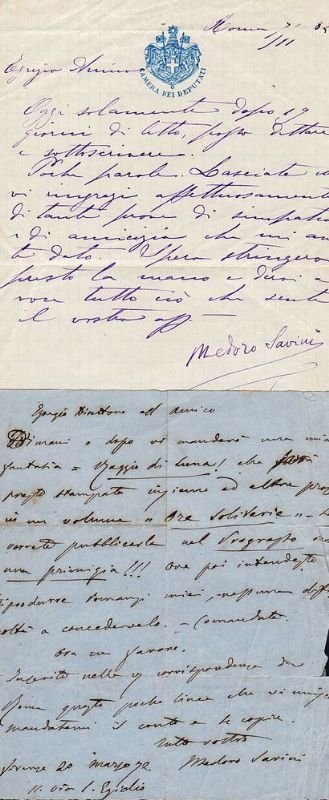 Roma 7/11 82
CAMERA DEI DEPUTATI
Egregio Amico
Oggi solamente dopo 19
giorni di letto, posso dettare
e sottoscrivere.
Poche parole. Lasciate che
vi ringrazi affettuosamente
di tante prove di simpatia
e di amicizia che mi avete
dato. Spero stringervi
presto la mano e dirvi a
voce tutto ciò che sente
il vostro aff
Medoro Savini
Egregio Direttore ed Amico
Dimani o dopo vi manderò una mia
fantasia = Raggio di Luna! che sarà
presto stampata insieme ad altre
in un volume " Ore Solitarie "
vorrete pubblicarla nel
una primizia!!! Ove poi intendeste
riprodurre romanzi miei, nessuna
a concedervelo. = Comandate.
Ora un favore.
Inserite nella corrispondenza da
Roma queste poche linee che vi
mandatemi il conto e le copie.
tutto vostro
Firenze 20 marzo 72 Medoro Savini
Via S. Egidio